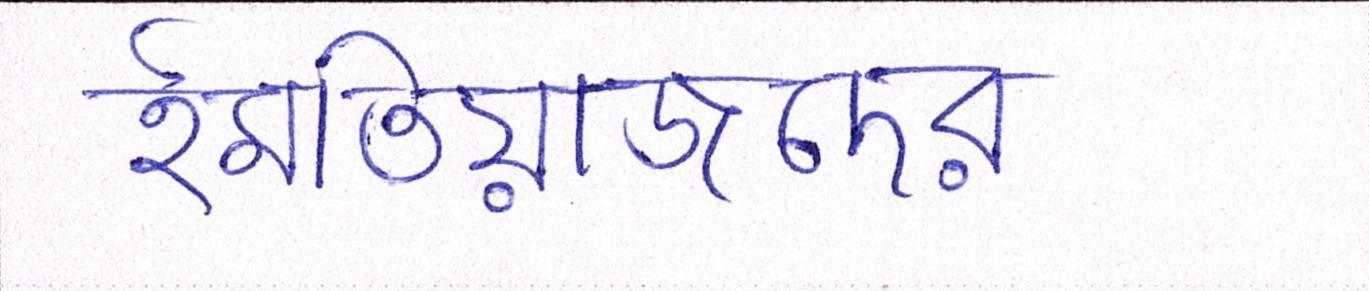 ইমতিয়াজদের